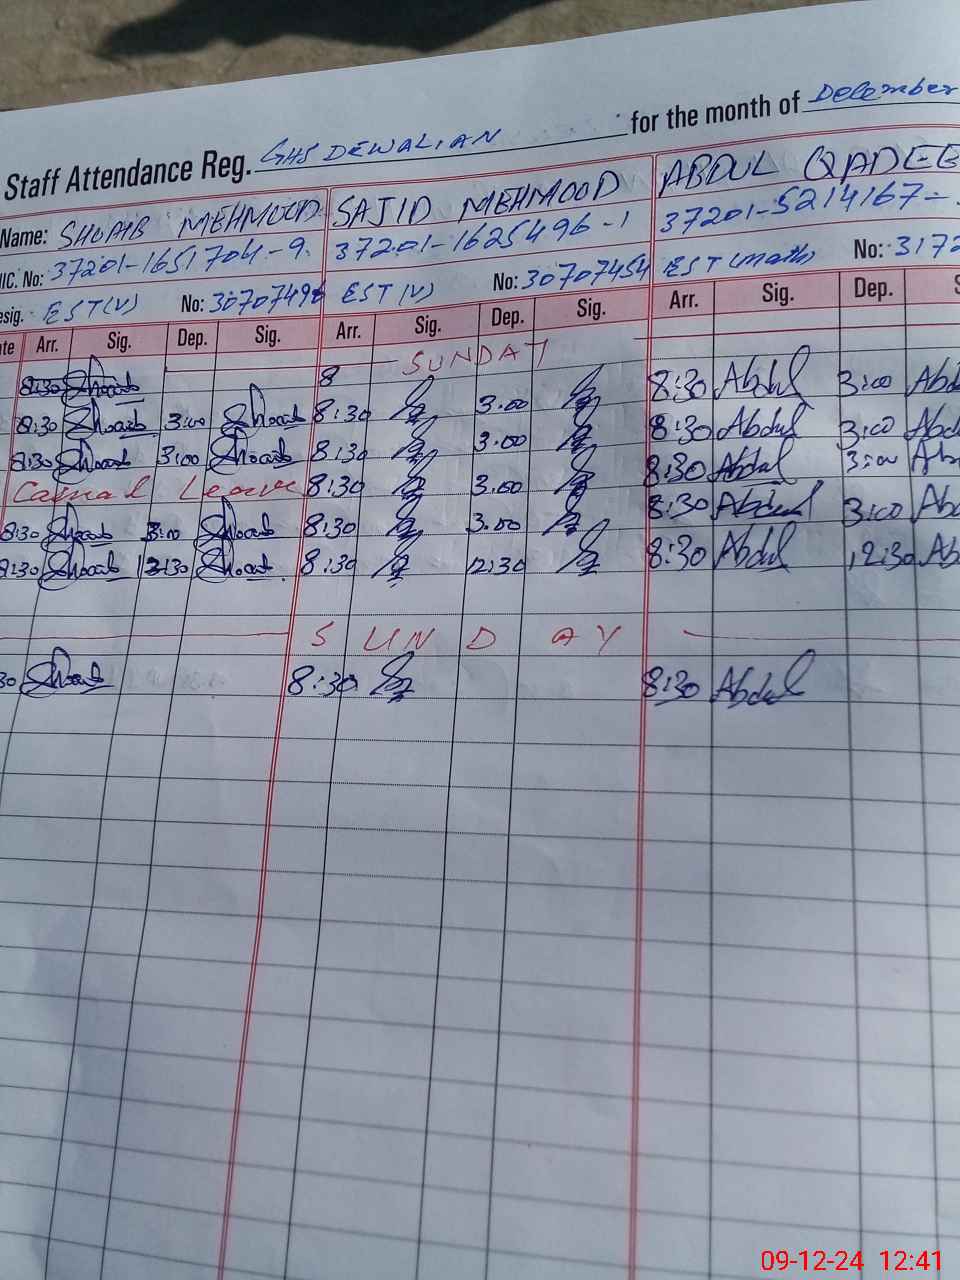 Staff Attendance Reg. GHS DEWALIAN for the month of December
Name: SHOAIB MEHMOOD SAJID MEHMOOD ABDUL QADEE
NIC. No: 37201-1651704-9. 37201-1625496-1 37201-5214167-
esig. EST(V) No: 3070749 EST(V) No: 30707454 EST (math) No: 3172
te Arr. Sig. Dep. Sig. Arr. Sig. Dep. Sig. Arr. Sig. Dep. S
SUNDAY
8:30 Shoaib 8 8:30 Abdul 3:00 Abd
8:30 Shoaib 3:00 Shoaib 8:30 3.00 8:30 Abdul 3:00 Abd
8:30 Shoaib 3:00 Shoaib 8:30 3.00 8:30 Abdul 3:00 Ab
Casual Leave 8:30 3.00 8:30 Abdul 3:00 Ab
8:30 Shoaib 3:00 Shoaib 8:30 3.00 8:30 Abdul 12:30 Ab
8:30 Shoaib 12:30 Shoaib 8:30 12:30
SUNDAY
30 Shoaib 8:30 8:30 Abdul
09-12-24 12:41